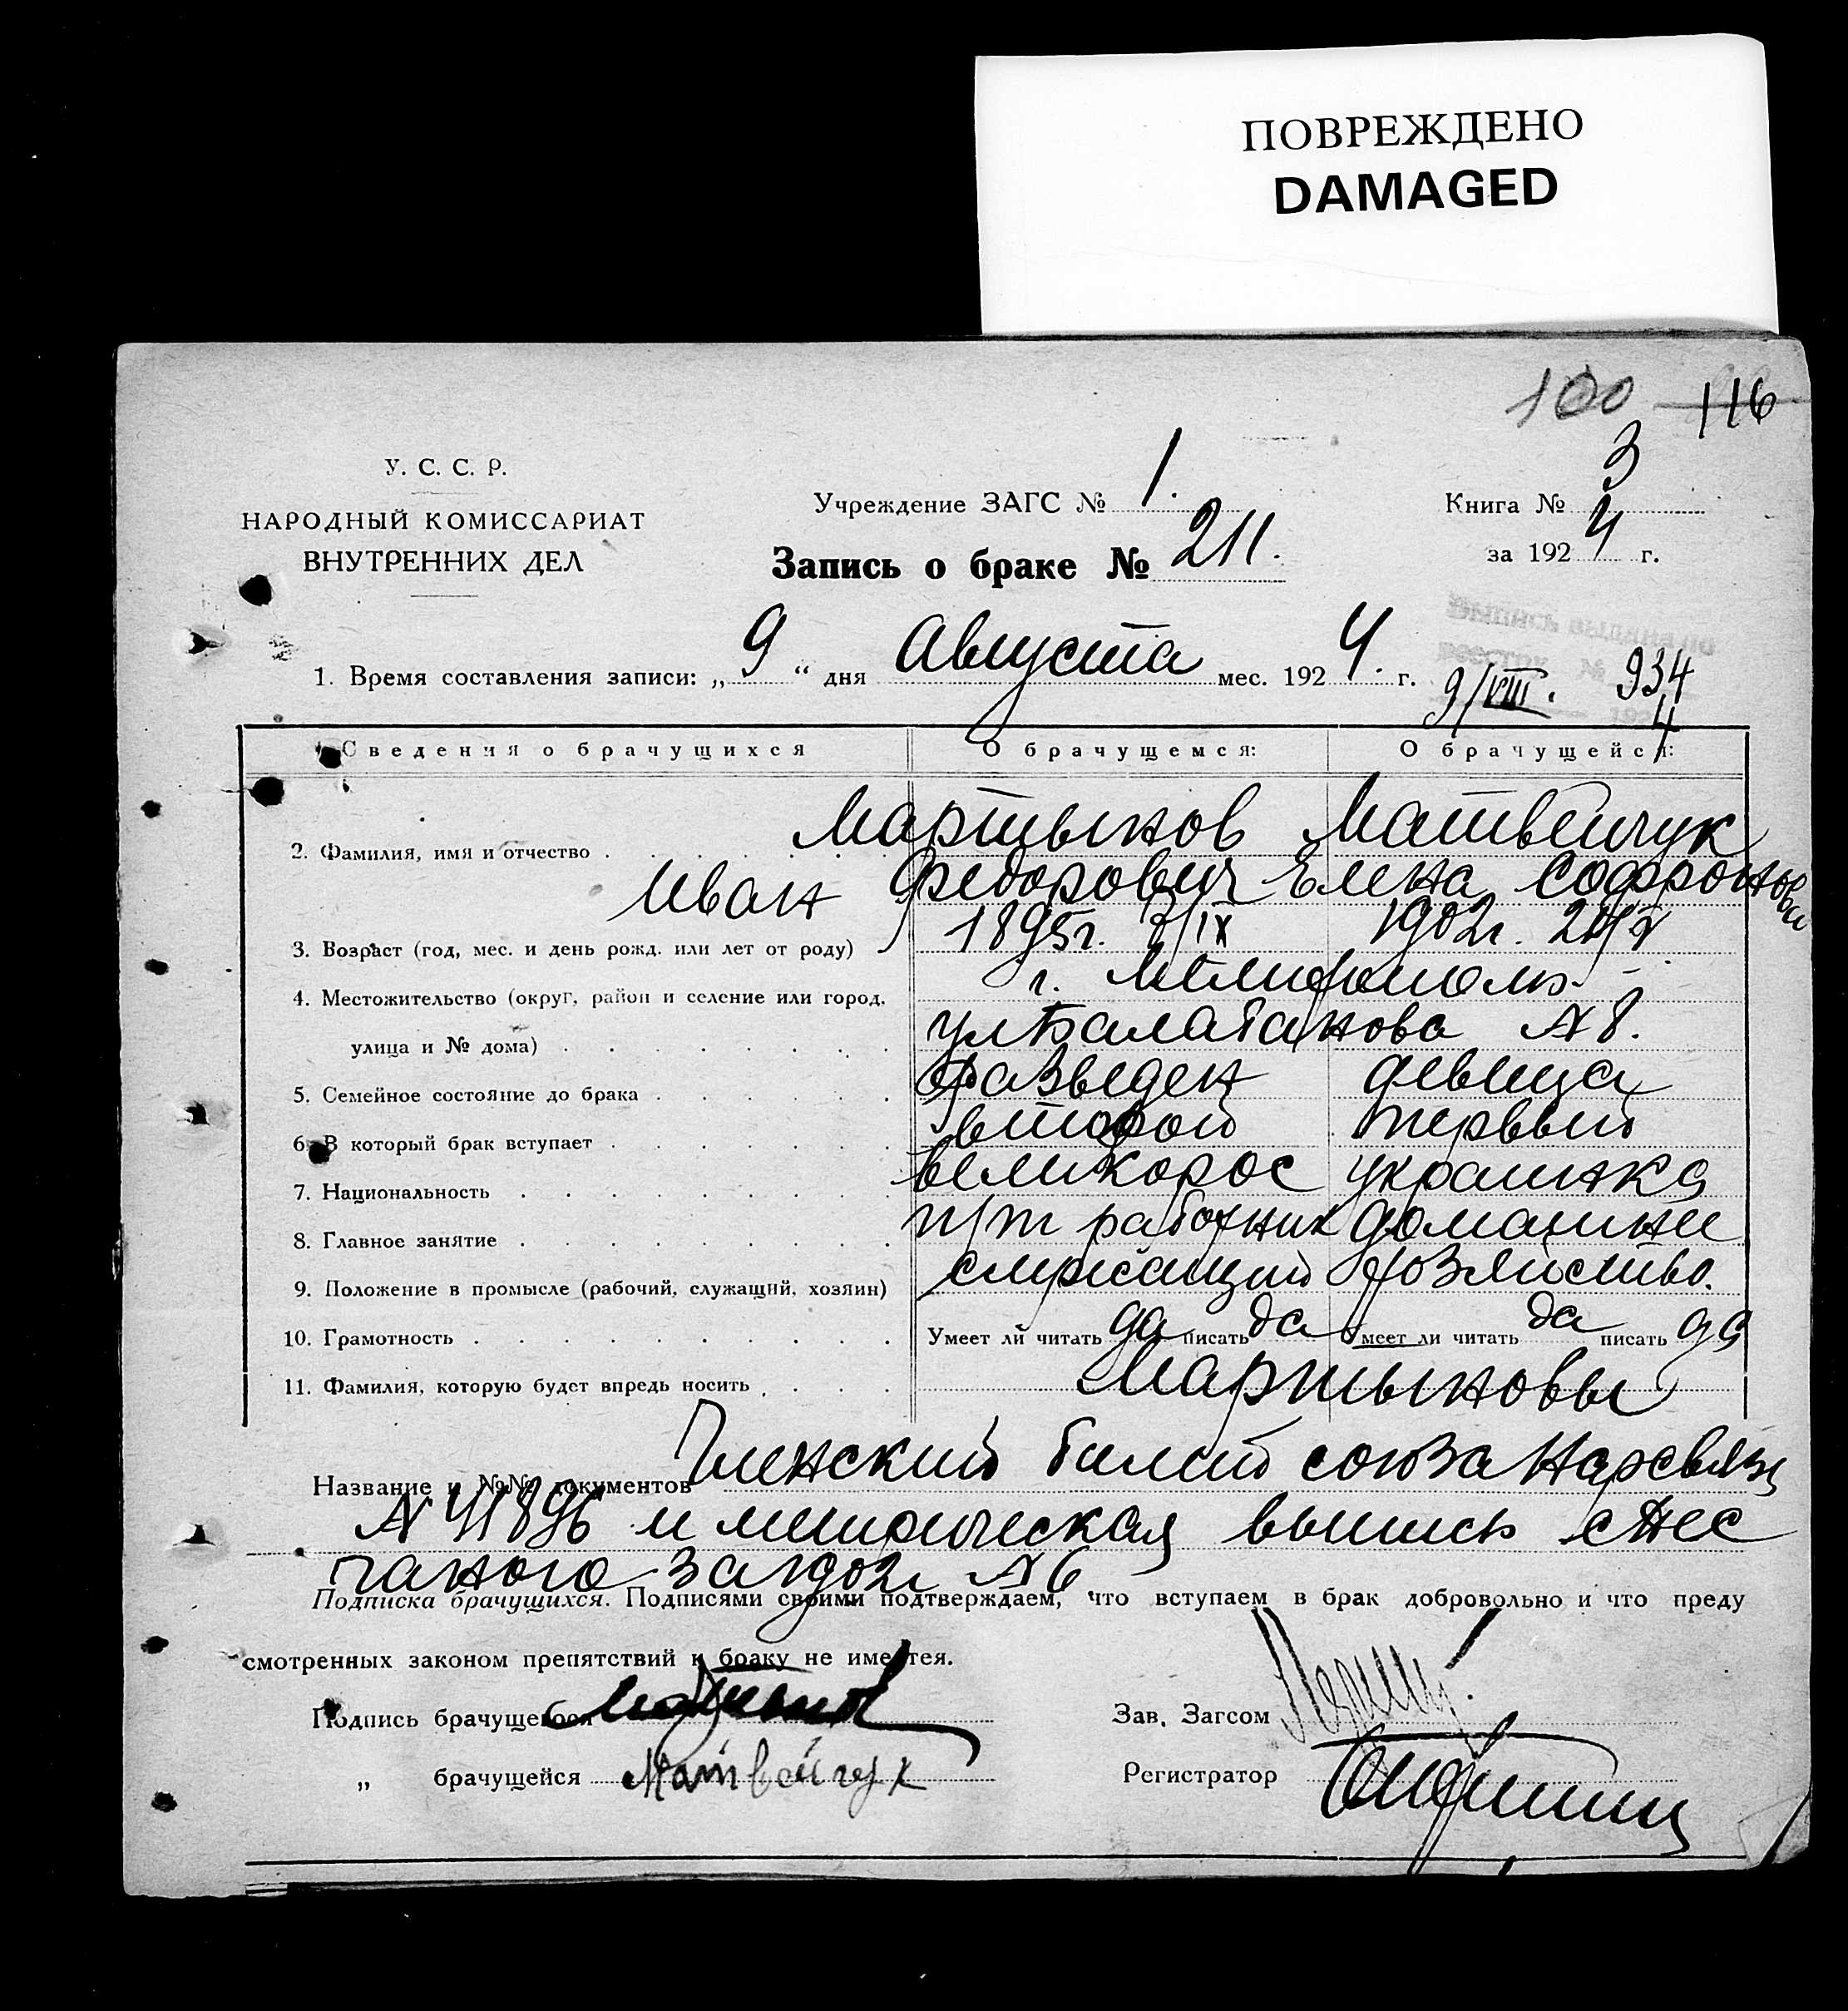 ПОВРЕЖДЕНО
DAMAGED
100 116
У. С. С. Р.
НАРОДНЫЙ КОМИССАРИАТ
ВНУТРЕННИХ ДЕЛ
Учреждение ЗАГС № 1.
Книга № 3
за 1924 г.
Запись о браке № 211.
1. Время составления записи: „9“ дня Августа мес. 1924. г.
9/VIII. 934
4
Сведения о брачущихся О брачущемся: О брачущейся:
2. Фамилия, имя и отчество Мартынов Матвейчук
Иван Федорович Елена Софроновы
3. Возраст (год, мес. и день рожд. или лет от роду) 1895г. /IX 1902г.
4. Местожительство (округ, район и селение или город, г. Мелитополь
улица и № дома) ул Балабанова № 8.
5. Семейное состояние до брака Разведен девица
6. В который брак вступает второй первый
7. Национальность великорос украинка
8. Главное занятие п/т работник домашнее
9. Положение в промысле (рабочий, служащий, хозяин) служащий хозяйство.
10. Грамотность Умеет ли читать да писать да Умеет ли читать да писать да
11. Фамилия, которую будет впредь носить Мартыновы
Название и №№ документов Членский билет союза Нарсвязи
№ 41896 и метрическая выпись с Пес
чаного за 1902г № 6
Подписка брачущихся. Подписями своими подтверждаем, что вступаем в брак добровольно и что преду
смотренных законом препятствий к браку не имеется.
Подпись брачущегося Мартынов
Зав. Загсом
„ брачущейся Матвейчук
Регистратор